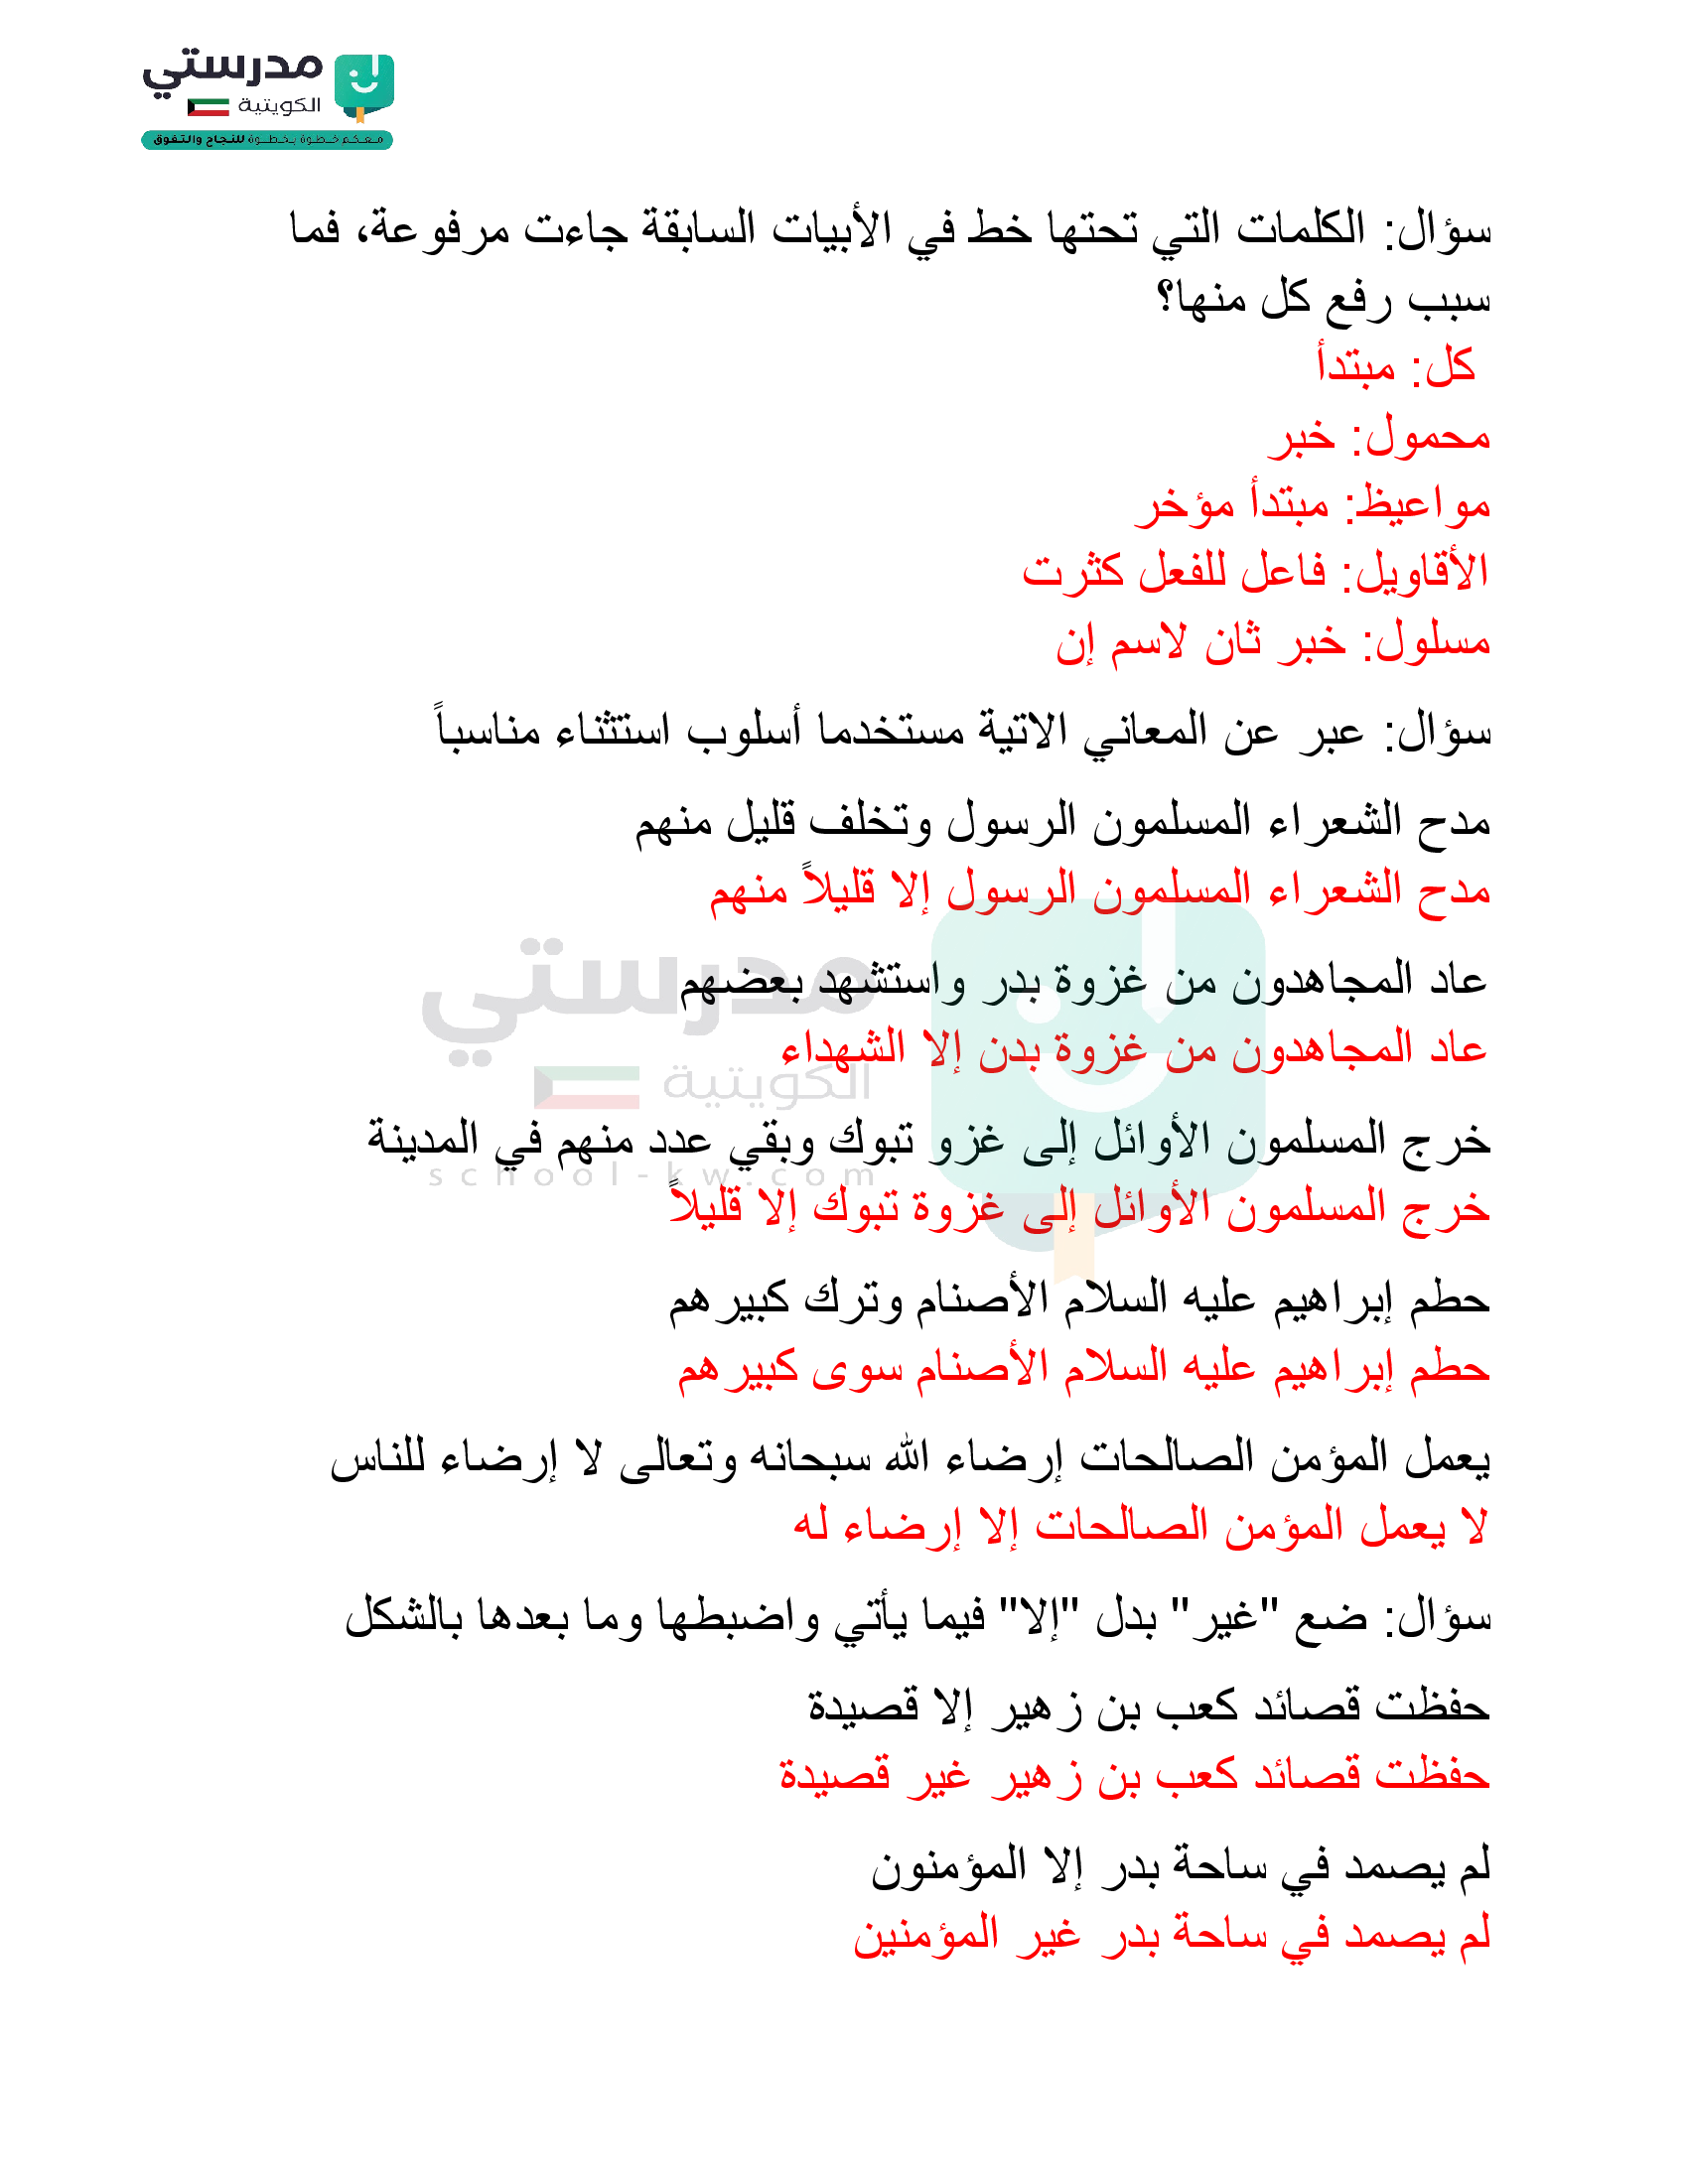 مدرستي
الكويتية
معكم خطوة بخطوة للنجاح والتفوق
سؤال: الكلمات التي تحتها خط في الأبيات السابقة جاءت مرفوعة، فما
سبب رفع كل منها؟
كل: مبتدأ
محمول: خبر
مواعيظ: مبتدأ مؤخر
الأقاويل: فاعل للفعل كثرت
مسلول: خبر ثان لاسم إن
سؤال: عبر عن المعاني الاتية مستخدما أسلوب استثناء مناسباً
مدح الشعراء المسلمون الرسول وتخلف قليل منهم
مدح الشعراء المسلمون الرسول إلا قليلاً منهم
عاد المجاهدون من غزوة بدر واستشهد بعضهم
عاد المجاهدون من غزوة بدن إلا الشهداء
خرج المسلمون الأوائل إلى غزو تبوك وبقي عدد منهم في المدينة
خرج المسلمون الأوائل إلى غزوة تبوك إلا قليلاً
حطم إبراهيم عليه السلام الأصنام وترك كبيرهم
حطم إبراهيم عليه السلام الأصنام سوى كبيرهم
يعمل المؤمن الصالحات إرضاء الله سبحانه وتعالى لا إرضاء للناس
لا يعمل المؤمن الصالحات إلا إرضاء له
سؤال: ضع "غير" بدل "إلا" فيما يأتي واضبطها وما بعدها بالشكل
حفظت قصائد كعب بن زهير إلا قصيدة
حفظت قصائد كعب بن زهير غير قصيدة
لم يصمد في ساحة بدر إلا المؤمنون
لم يصمد في ساحة بدر غير المؤمنين
مدرستي
الكويتية
school-kw.com